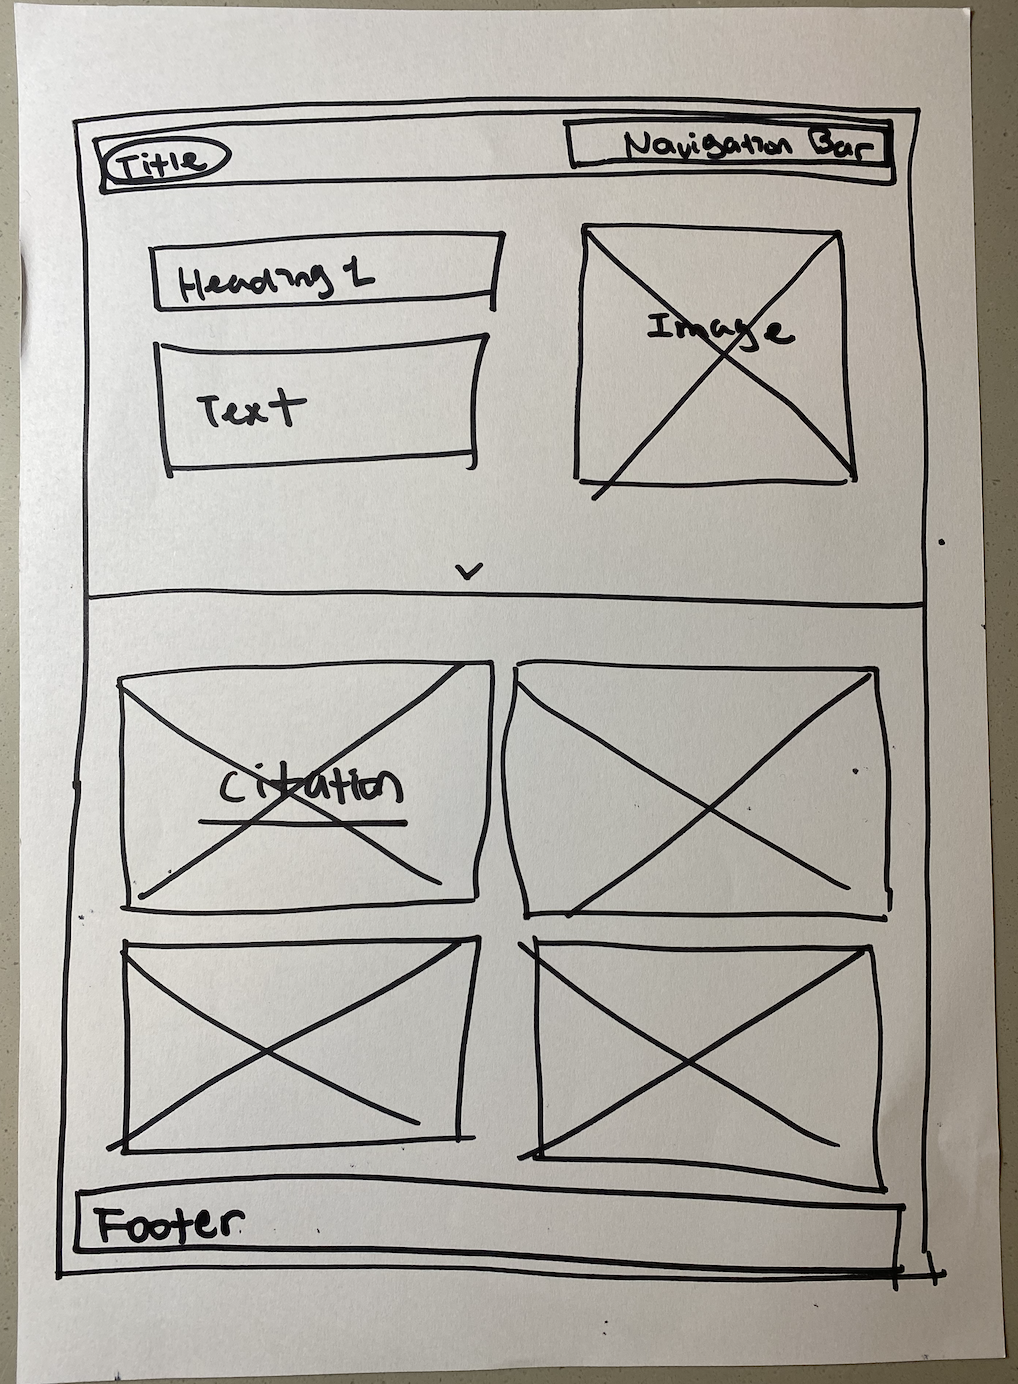 Title
Navigation Bar
Heading 1
Image
Text
Citation
Footer